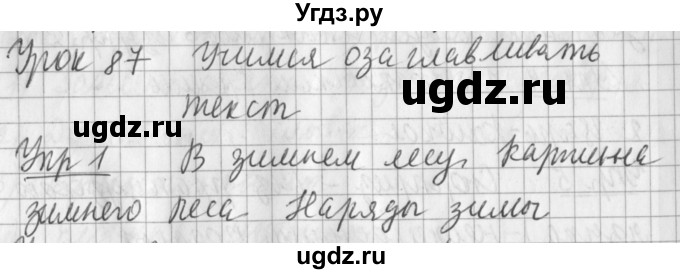 Угдз.ру
Урок 87 Учимся озаглавливать
ugdz.ru
текст
ugdz.ru
Упр 1 В зимнем лесу. Картинна
зимнего леса Наряды зимы
ugdz.ru
ugdz.ru